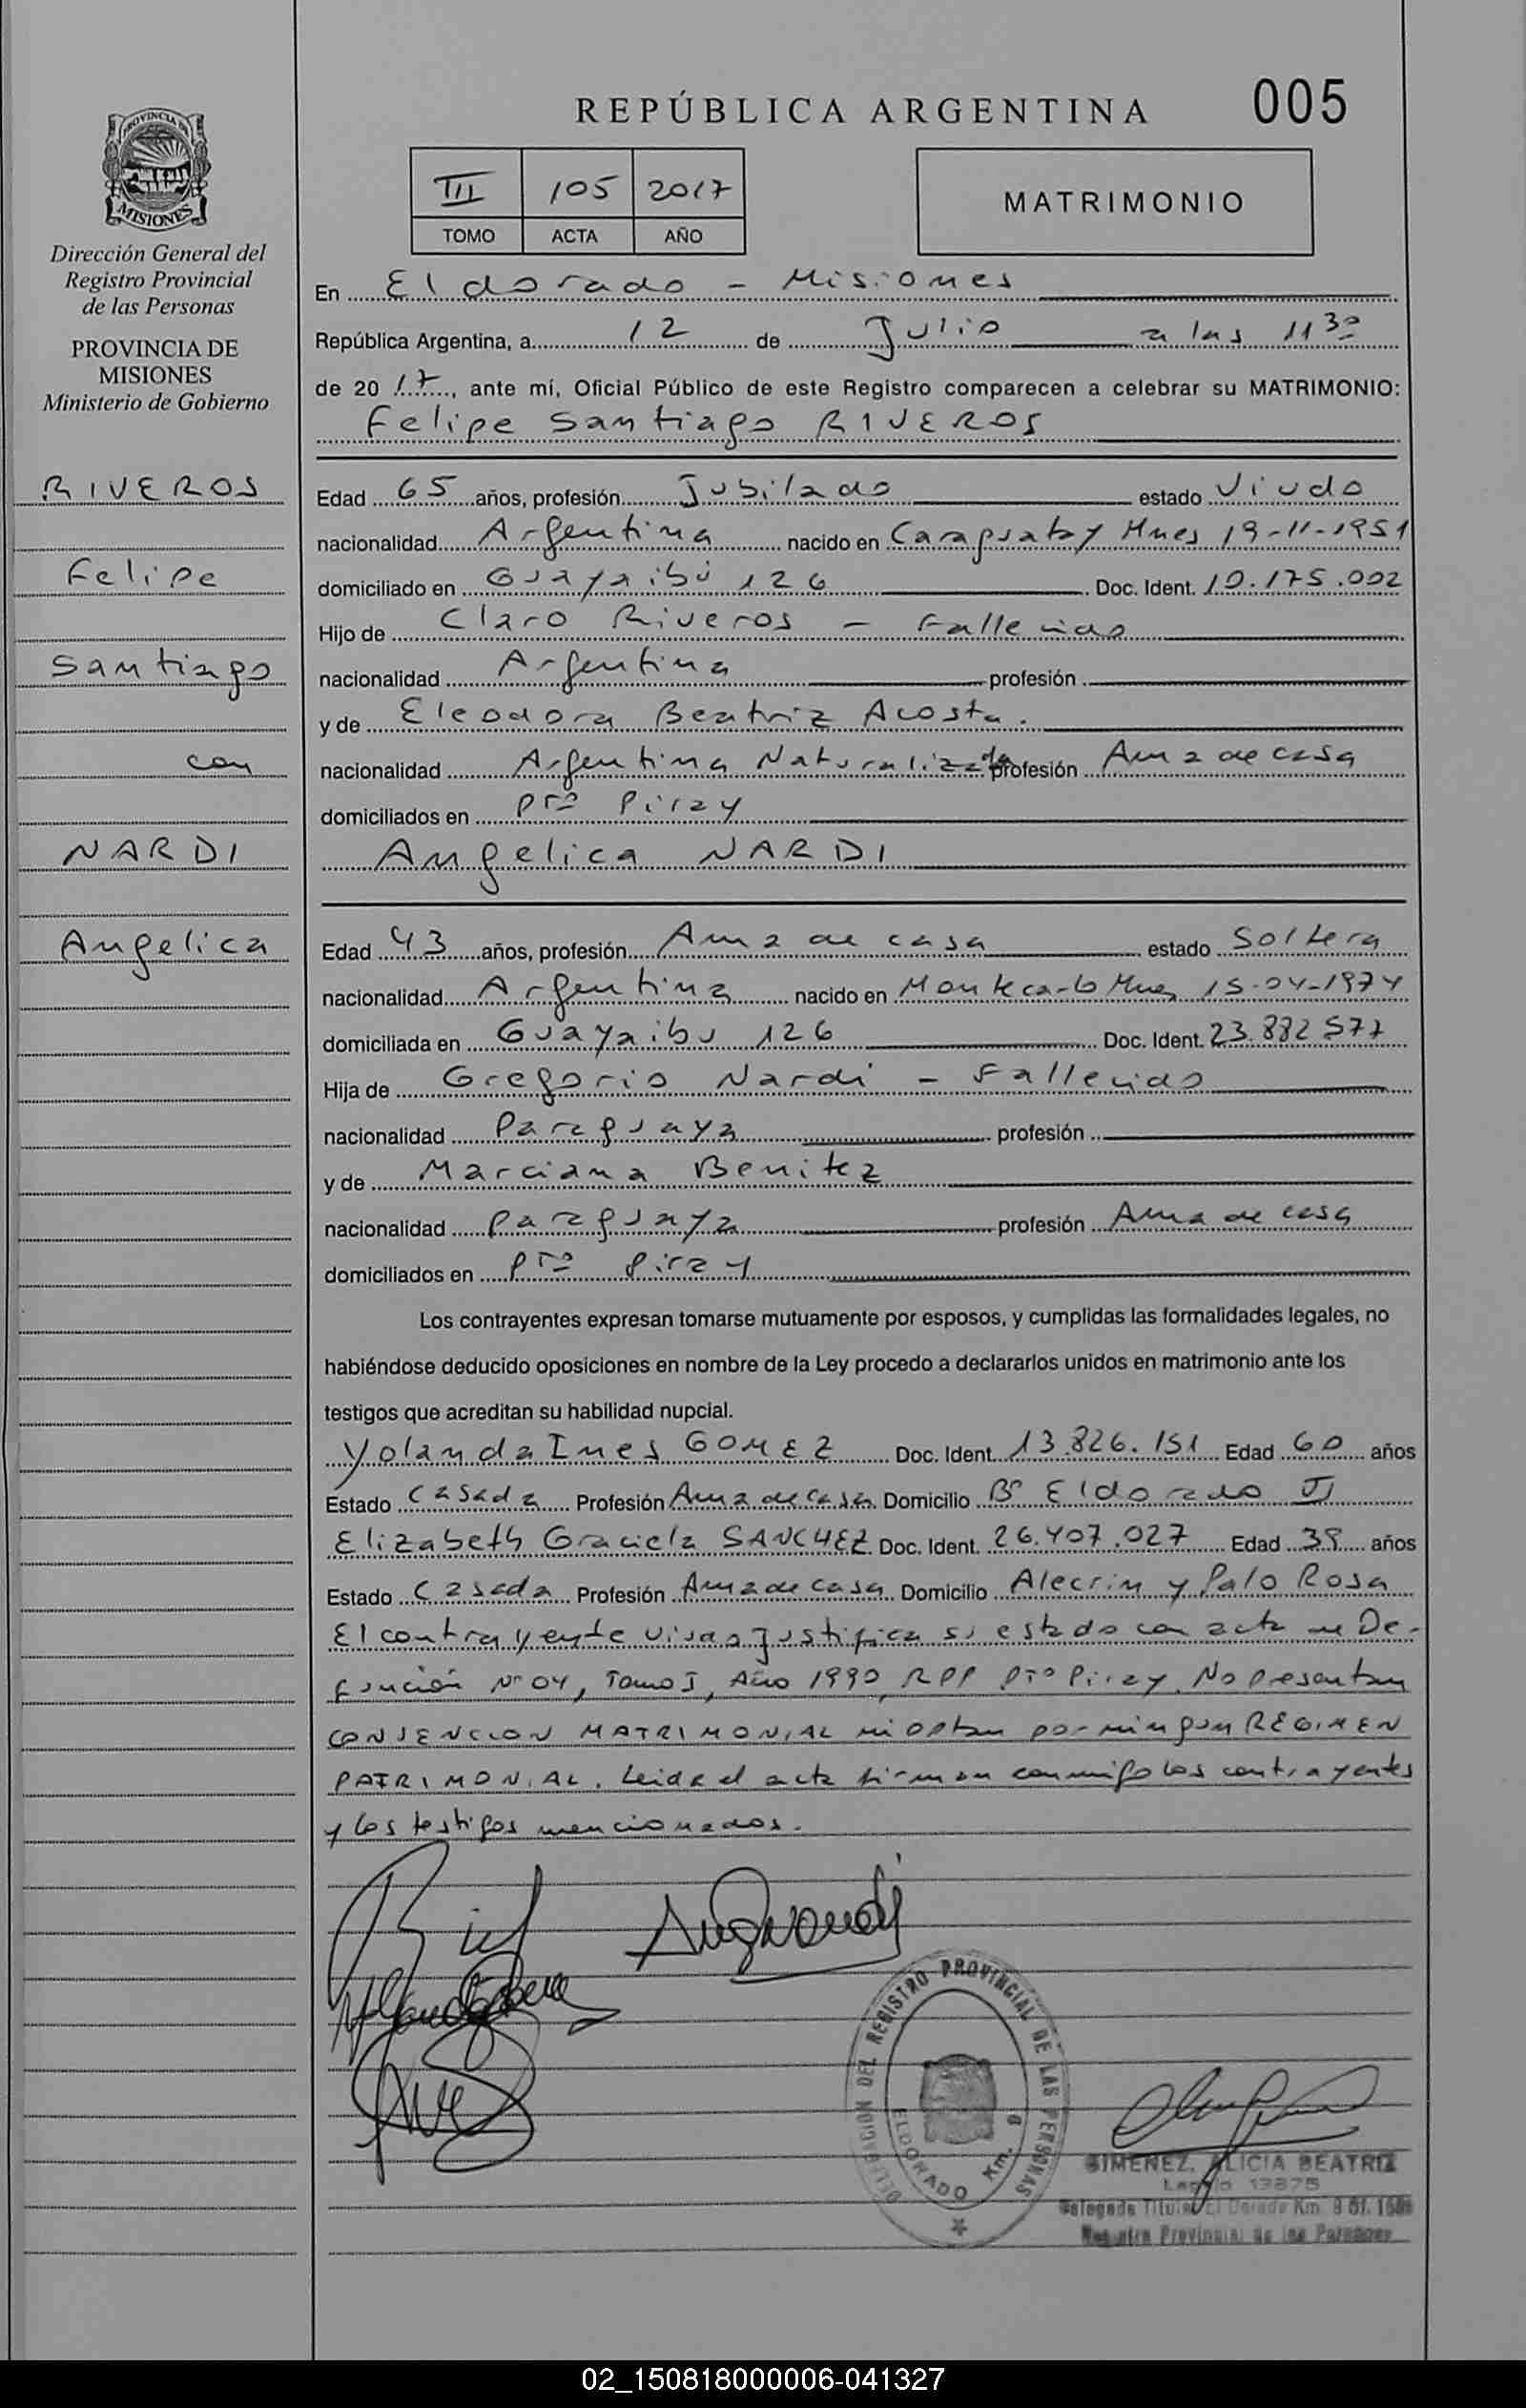 REPÚBLICA ARGENTINA 005
PROVINCIA DE
MISIONES
Dirección General del
Registro Provincial
de las Personas
PROVINCIA DE
MISIONES
Ministerio de Gobierno
RIVEROS
Felipe
Santiago
con
NARDI
Angelica
III 105 2017
TOMO ACTA AÑO
MATRIMONIO
En Eldorado - Misiones
República Argentina, a 12 de Julio a las 11 30
de 20 17, ante mí, Oficial Público de este Registro comparecen a celebrar su MATRIMONIO:
Felipe Santiago RIVEROS
Edad 65 años, profesión Jubilado estado Viudo
nacionalidad Argentina nacido en Caraguatay Mnes 19-11-1951
domiciliado en Guayaibú 126 Doc. Ident. 10.175.002
Hijo de Claro Riveros - Fallecido
nacionalidad Argentina profesión
y de Eleodora Beatriz Acosta.
nacionalidad Argentina Naturalizada profesión Ama de casa
domiciliados en Pto Piray
Angelica NARDI
Edad 43 años, profesión Ama de casa estado Soltera
nacionalidad Argentina nacido en Montecarlo Mnes 15-04-1974
domiciliada en Guayaibu 126 Doc. Ident. 23.882.577
Hija de Gregorio Nardi - Fallecido
nacionalidad Paraguaya profesión
y de Marciana Benitez
nacionalidad Paraguaya profesión Ama de casa
domiciliados en Pto Piray
Los contrayentes expresan tomarse mutuamente por esposos, y cumplidas las formalidades legales, no
habiéndose deducido oposiciones en nombre de la Ley procedo a declararlos unidos en matrimonio ante los
testigos que acreditan su habilidad nupcial.
Yolanda Ines GOMEZ Doc. Ident. 13.826.151 Edad 60 años
Estado Casada Profesión Ama de casa Domicilio Bº Eldorado II
Elizabeth Graciela SANCHEZ Doc. Ident. 26.407.027 Edad 39 años
Estado Casada Profesión Ama de casa Domicilio Alecrin y Palo Rosa
El contrayente viudo justifica su estado con acta de De-
función Nº 04, Tomo I, Año 1990, RPP Pto Piray. No presentan
CONVENCION MATRIMONIAL ni optan por ningun REGIMEN
PATRIMONIAL. Leida el acta firman conmigo los contrayentes
y los testigos mencionados.
DELEGACION DEL REGISTRO PROVINCIAL DE LAS PERSONAS
ELDORADO Km. 9
GIMENEZ, ALICIA BEATRIZ
Legajo 13875
Delegada Titular El Dorado Km. 9 Of.
Registro Provincial de las Personas
02_150818000006-041327